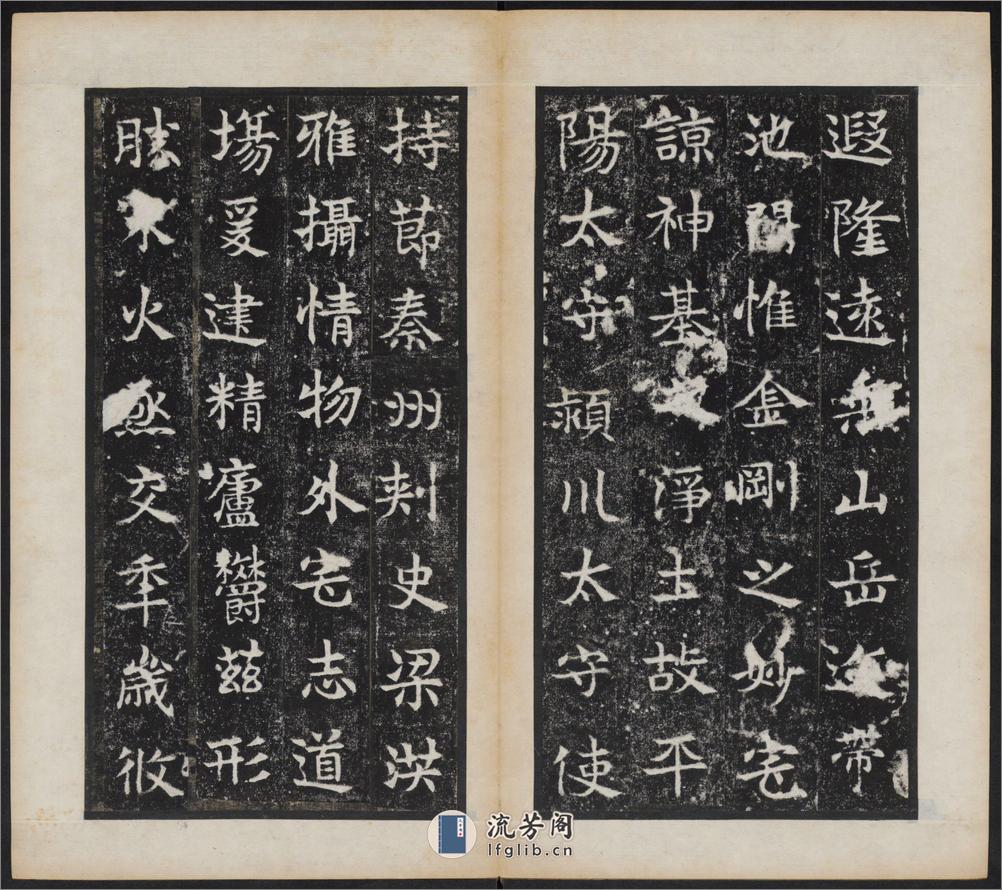 遐隆遠岳山岳迩帯
池閞惟金剛之妙宅
諒神基淨土故平
陽太守潁川太守使
持莭秦州刾史梁洪
雅攝情物外宅志道
場爰建精廬欝兹形
勝水火烝交秊歲攸
流芳阁
lfglib.cn